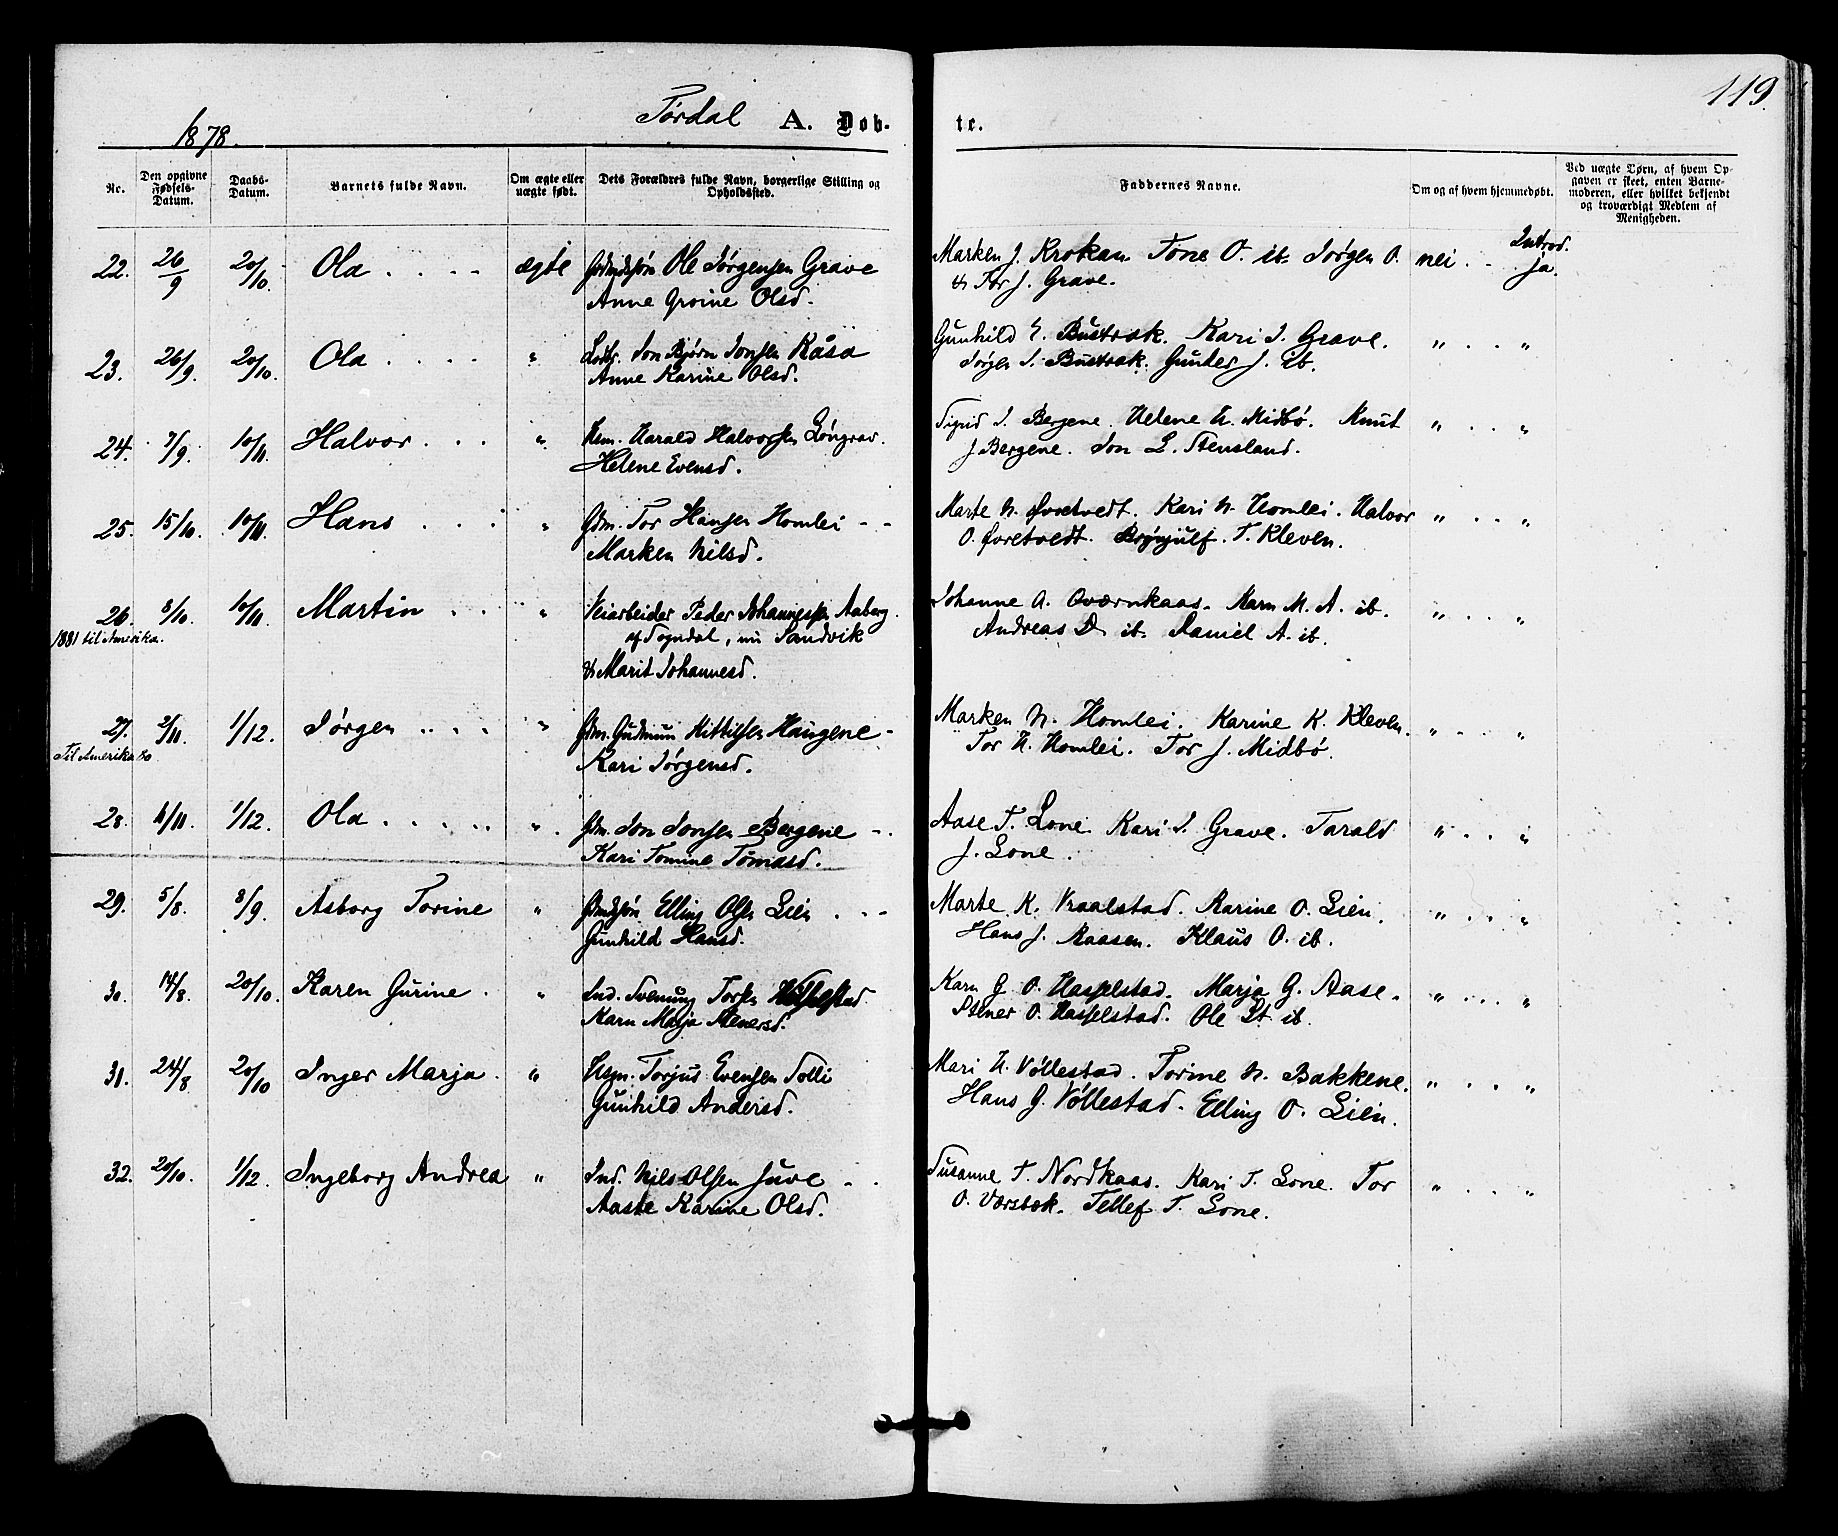 119.
1878. Tørdal A. Døb- te.
Nr. Den opgivne Fødsels-Datum. Daabs-Datum. Barnets fulde Navn. Om ægte eller uægte født. Dets Forældres fulde Navn, borgerlige Stilling og Opholdssted. Faddernes Navne. Om og af hvem hjemmedøbt. Ved uægte Børn, af hvem Opgaven er skeet, enten Barnemoderen, eller hvilket bekjendt og troværdigt Medlem af Menigheden.
Introd.
22. 26/9 20/10. Ola . . . . ægte Ole Jørgensen Grave Marken J. Krokan. Tone O. ib. Jørgen O. nei . - ja.
Anne Groine Olsd. & Tor J. Grave.
23. 26/9. 20/10. Ola . . . . " Jon Bjørn Jonsen Råsa Gunhild E. Bustrak. Kari J. Grave. " . . "
Anne Karine Olsd. Jørgen J. Bustrak. Gunder J. ib.
24. 7/9. 10/11. Halvor . . . " Hsm. Harald Halvorsen Løngrav. Sigrid J. Bergene. Helene H. Midbø. Knut " . . "
Helene Evensd. J Bergene. Jon L. Stensland.
25. 15/10. 10/11. Hans . . . " Gdm. Tor Hansen Homlei - - Marte N. Øvretvedt. Kari N. Homlei. Halvor " . . "
Marken Nilsd. O. Øvretvedt. Brynjulf. T. Kleven.
26. 8/10. 10/11. Martin . . . " Veiarbeider Peder Johannessen Aaberg. Johanne A. Qværnkaas. Karn M. A. ib. " . . "
1881 til Amerika. af Sogndal, nu Sandvik Andreas D. ib. Daniel A. ib.
& Marit Johannesd.
27. 2/11. 1/12. Jørgen . . . . " Gdm. Gudmun Kittilsen Haugene - Marken N. Homlei. Karine K. Kleven. " . . "
Til Amerika Kari Jørgensd. Tor H. Homlei. Tor J. Midbø.
28. 1/12. Ola . . . . . " . Gdm. Jon Jonsen Bergene - . Aase T. Lone. Kari J. Grave. Tarald " . . "
Kari Tomine Tomasd. J. Lone.
29. 5/8. 8/9. Asborg Torine " Elling Olsen Lien . - - Marte K. Vraalstad. Karine O. Lien. " . . "
Gunhild Hansd. Hans J. Raasen. Klaus O. ib.
30. 14/8. 20/10. Karen Gurine . " Ind. Svenung Torsen Hasselstad Karn G. O. Hasselstad. Marja G. Aase. " . . "
Karn Marja Stenersd. Stener O. Hasselstad. Ole St. ib.
31. 24/8 20/10 Inger Marja . " Hsm. Torjus Evensen Solli Mari H. Vøllestad. Torine N. Bakkene. " . . "
Gunhild Andersd. Hans G. Vøllestad. Elling O. Lien.
32. 20/10. 1/12. Ingeborg Andrea " Ind. Nils Olsen Juve - . Susanne T. Nordkaas. Kari T. Lone. Tor " . . "
Aaste Karine Olsd. O. Værsbæk. Tellef T. Lone.